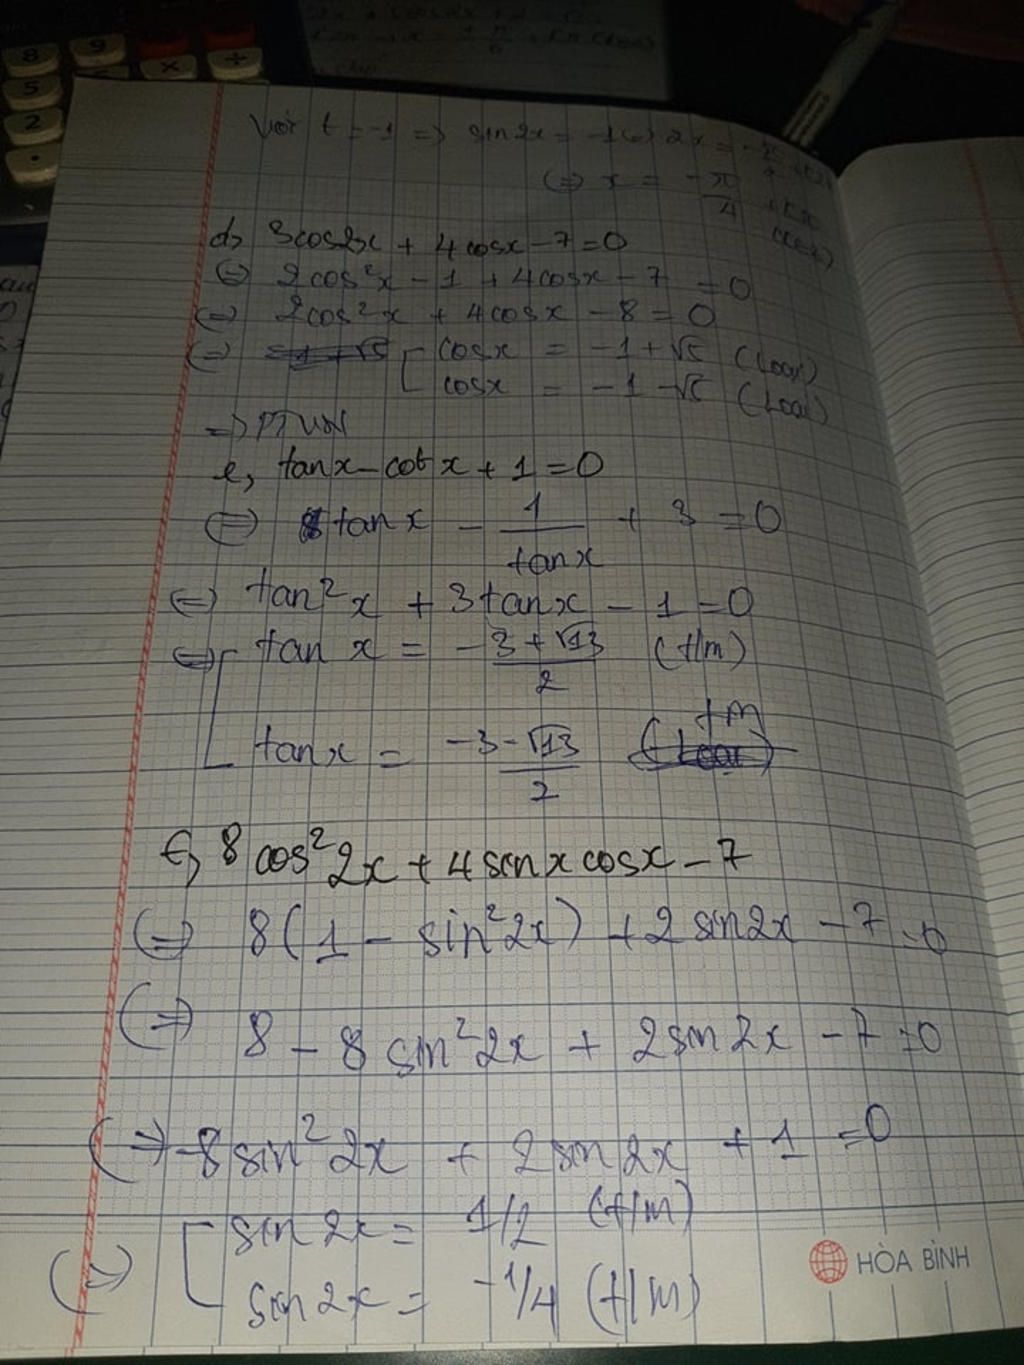 Với t = -1 => sin2x = -1 (=) 2x = -π/2
(=) x = -π/4 + kπ
(k∈Z)
d, 3cos2x + 4cosx - 7 = 0
(=) 2cos²x - 1 + 4cosx - 7 = 0
(=) 2cos²x + 4cosx - 8 = 0
(=) [ cosx = -1 + √5 (Loại)
cosx = -1 - √5 (Loại)
=> PTVN
e, tanx - cotx + 1 = 0
(=) tanx - 1/tanx + 3 = 0
(=) tan²x + 3tanx - 1 = 0
(=) [ tanx = -3 + √13 / 2 (t/m)
tanx = -3 - √13 / 2 tm
f, 8cos²2x + 4sinxcosx - 7
(=) 8(1 - sin²2x) + 2sin2x - 7 = 0
(=) 8 - 8sin²2x + 2sin2x - 7 = 0
(=) -8sin²2x + 2sin2x + 1 = 0
(=) [ sin2x = 1/2 (t/m)
sin2x = -1/4 (t/m)
HÒA BÌNH